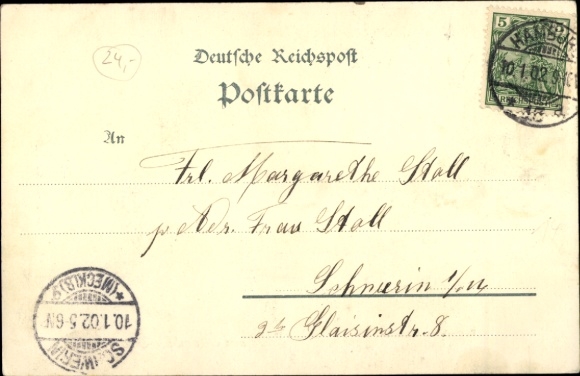 24,-
Deutsche Reichspost
Postkarte
5
HAMBURG
10.1.02.9
An
Frl. Margarethe Stoll
p Adr. Frau Stoll
Schwerin i/M
Glaisinstr. 8.
SCHWERIN
10.1.02.5-6N
*(MECKLB)*